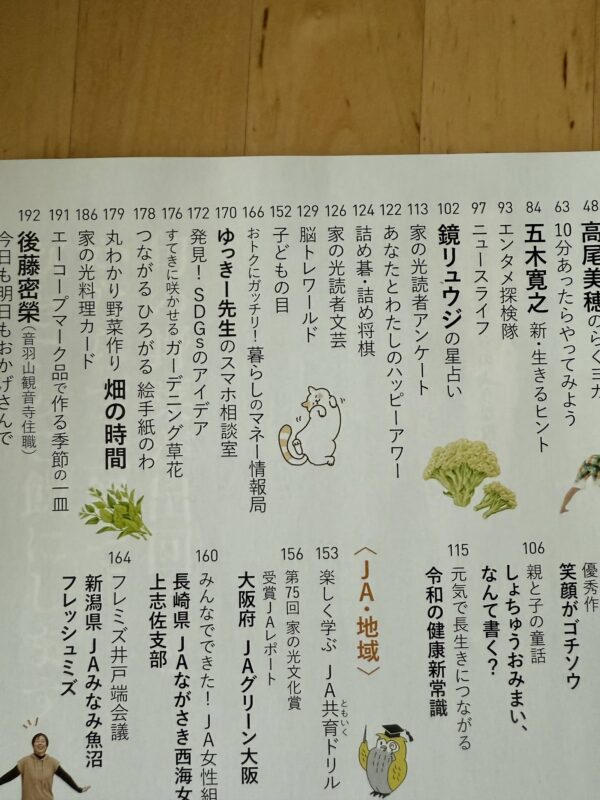 48
高尾美穂のらくヨガ
63
10分あったらやってみよう
84
五木寛之 新・生きるヒント
93
エンタメ探検隊
97
ニュースライフ
102
鏡リュウジの星占い
113
家の光読者アンケート
122
あなたとわたしのハッピーアワー
124
詰め碁・詰め将棋
126
家の光読者文芸
129
脳トレワールド
152
子どもの目
166
おトクにガッチリ！暮らしのマネー情報局
170
ゆっきー先生のスマホ相談室
172
発見！SDGsのアイデア
176
すてきに咲かせる ガーデニング草花
178
つながる ひろがる 絵手紙のわ
179
丸わかり野菜作り 畑の時間
186
家の光料理カード
191
エーコープマーク品で作る季節の一皿
192
後藤密榮（音羽山観音寺住職）
今日も明日もおかげさんで
優秀作
笑顔がゴチソウ
106
親と子の童話
しょちゅうおみまい、
なんて書く？
115
元気で長生きにつながる
令和の健康新常識
〈JA・地域〉
153
楽しく学ぶ JA共育ドリル
ともいく
156
第75回 家の光文化賞
受賞JAレポート
大阪府 JAグリーン大阪
160
みんなでできた！JA女性組
長崎県 JAながさき西海女
上志佐支部
164
フレミズ井戸端会議
新潟県 JAみなみ魚沼
フレッシュミズ